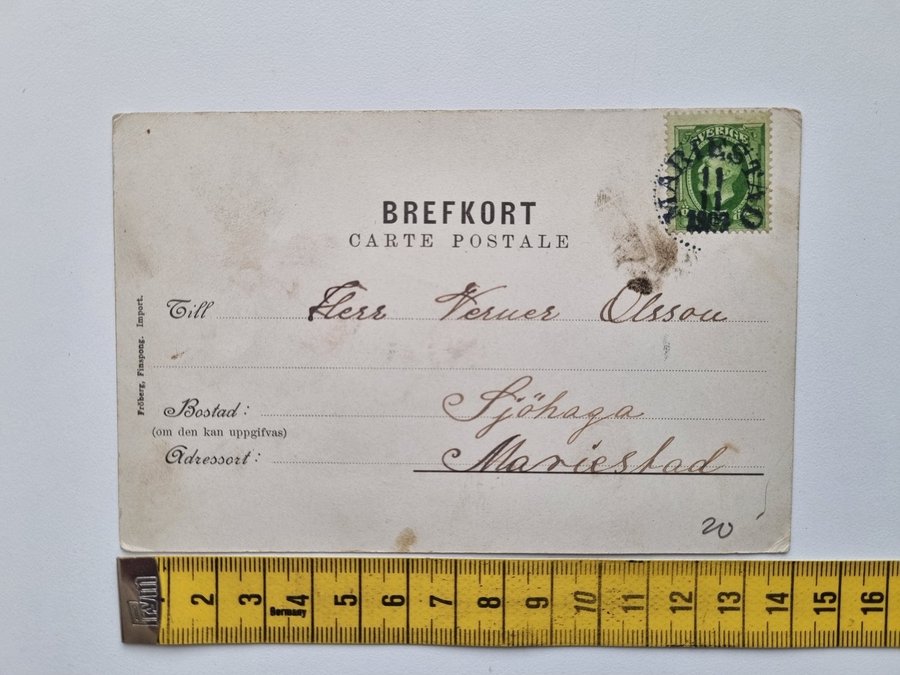 SVERIGE
MARIESTAD
11
11
1902
BREFKORT
CARTE POSTALE
Till Herr Verner Olsson
Bostad: Sjöhaga
(om den kan uppgifvas)
Adressort: Mariestad
Fröberg, Finspong. Import.
20
2 3 4 5 6 7 8 9 10 11 12 13 14 15 16
Germany